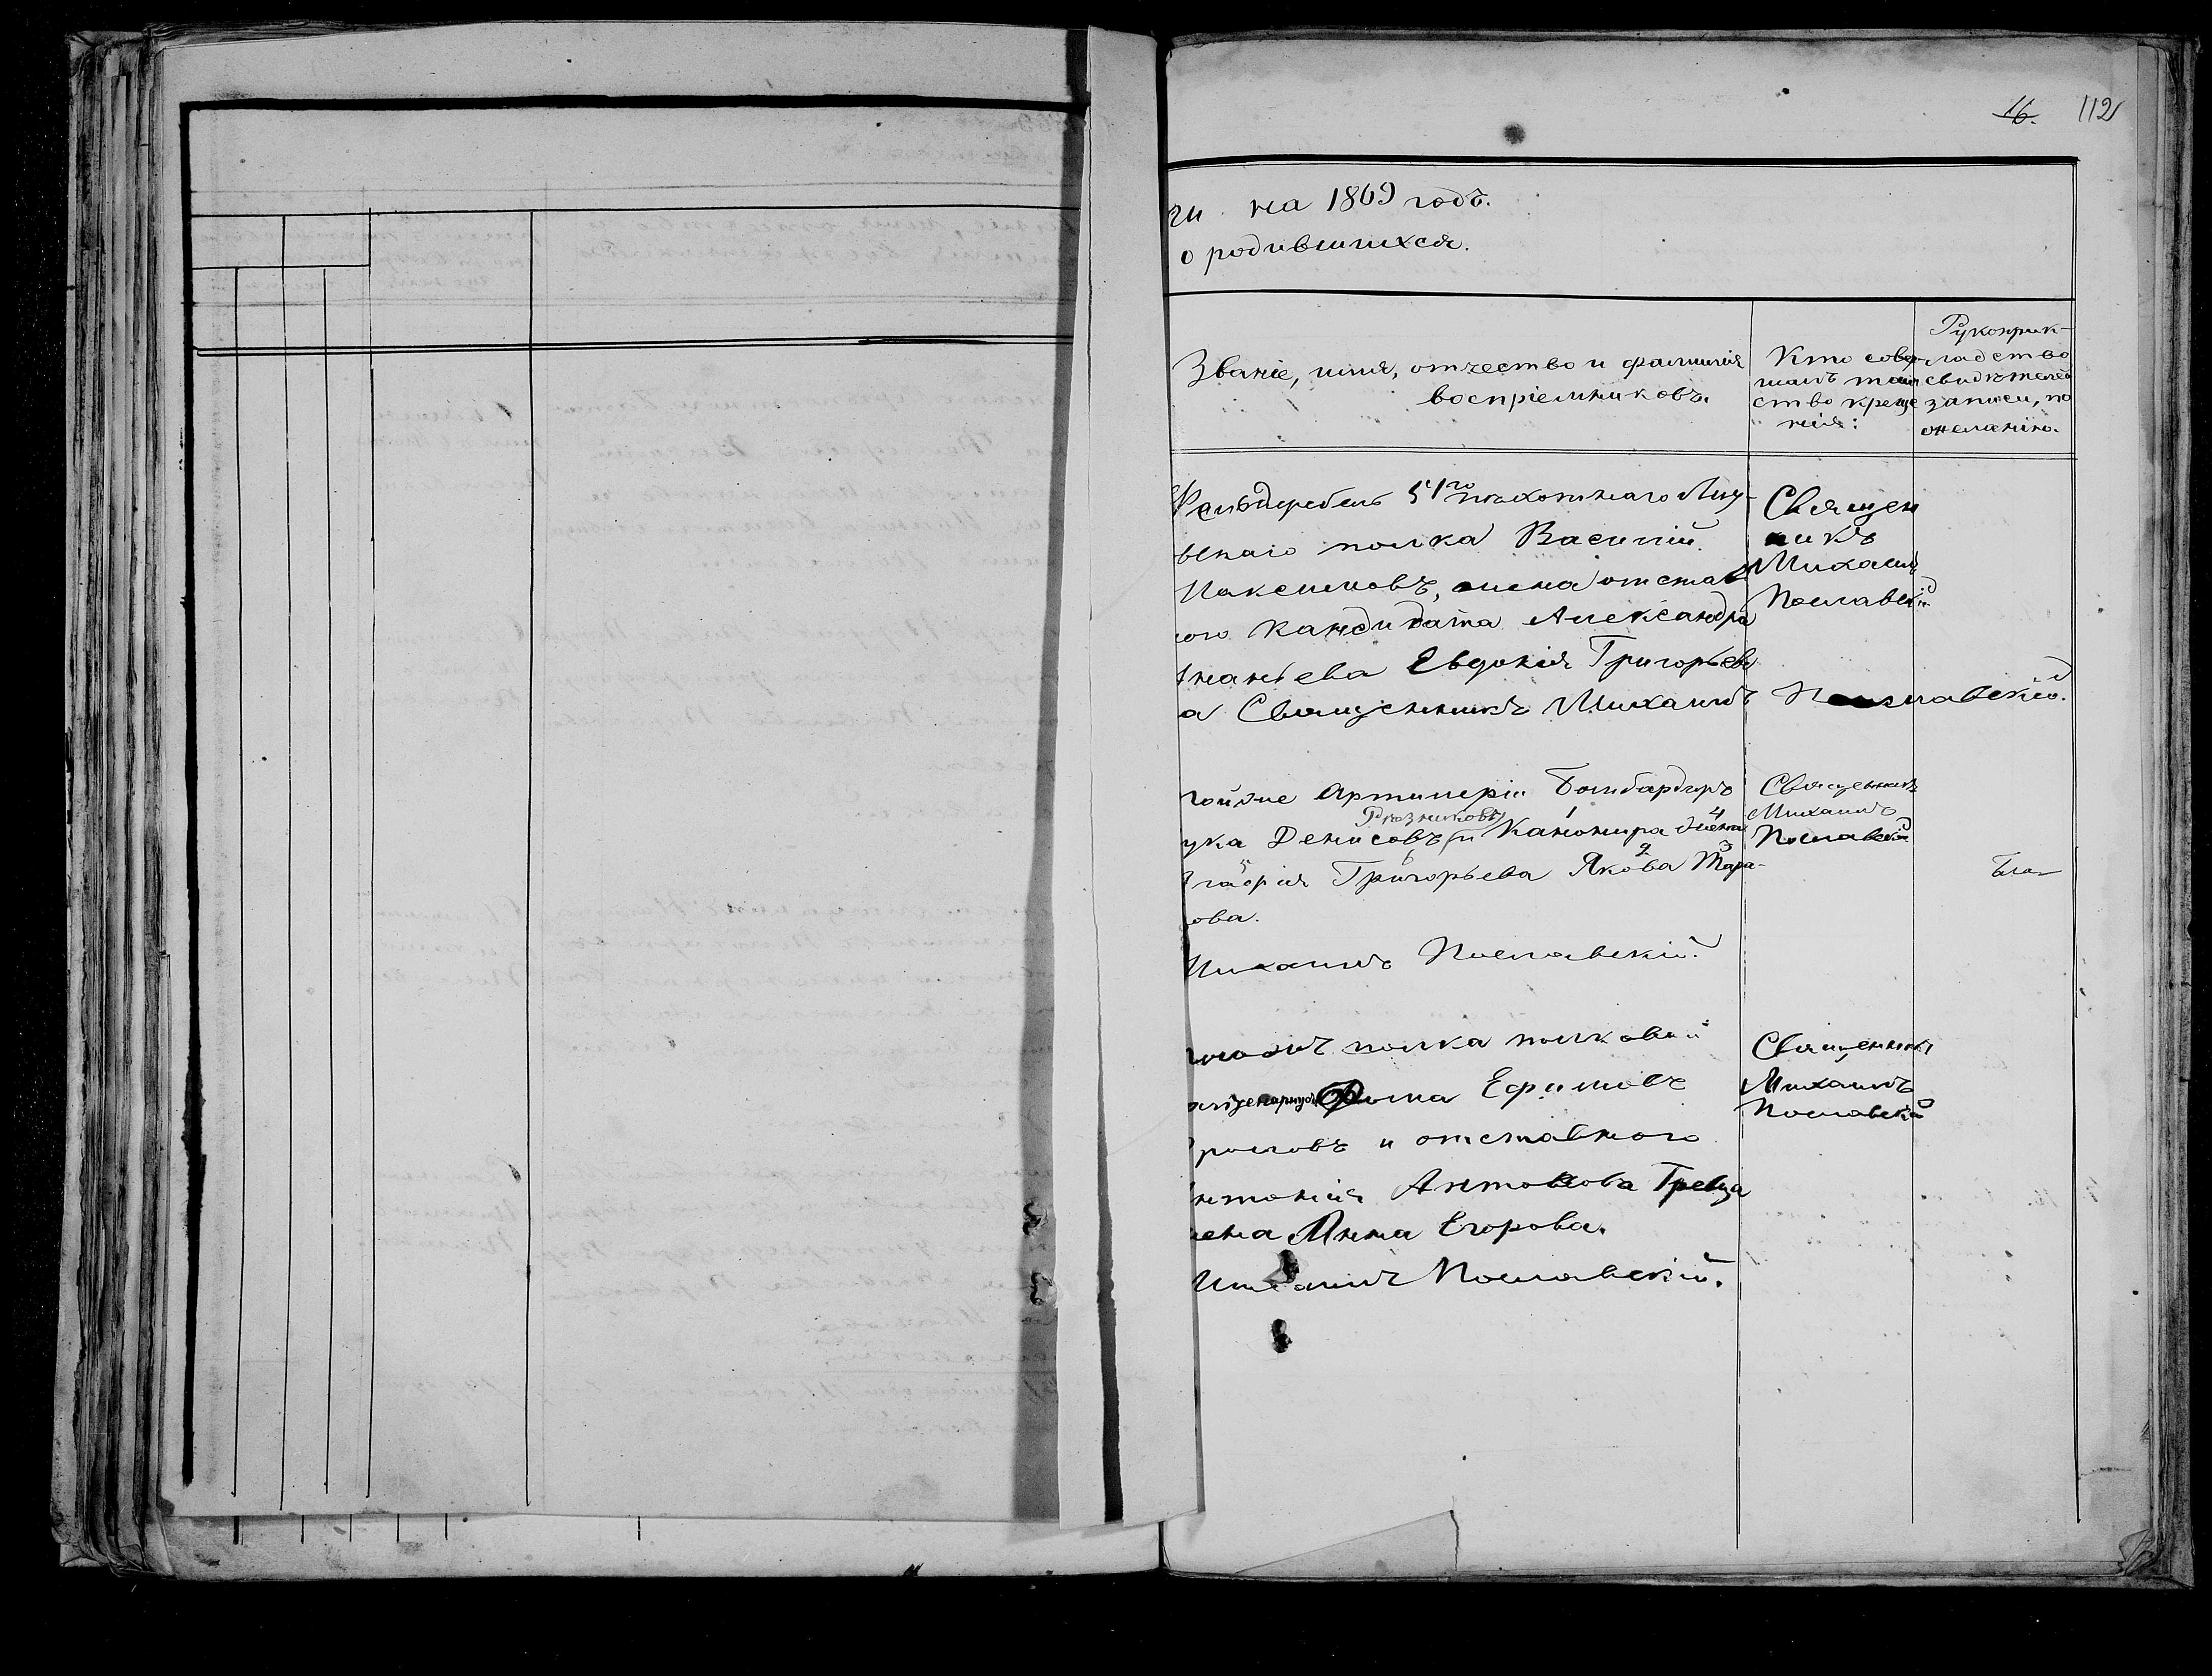 16. 112
ги на 1869 годъ.
о родившихся.
Званіе, имя, отчество и фамилія
воспріемниковъ.
Кто совер-
шалъ таин
ство креще
нія:
Рукоприк-
ладство
свидѣтелей
записи, по
желанію.
Фельдфебель 51го пѣхотнаго Лит-
вскаго полка Василій
Максимовъ, жена отстав
ого кандидата Александра
Ананьева Евдокія Григорьев
а Священникъ Михаилъ Пославскій.
Священ
никъ
Михаилъ
Пославскій
Артиллеріи Бомбардиръ
Рѣзниковъ 1 4
ука Денисовъ и Канонира жена
5 6 2 3
Григорьева Якова Тара-
ова.
Михаилъ Пославскій.
Священникъ
Михаилъ
Пославскій
полка полковой
Фома Ефимовъ
и отставного
нтонія Антонова
жена Анна Егорова.
Михаилъ Пославскій.
Священникъ
Михаилъ
Пославскій